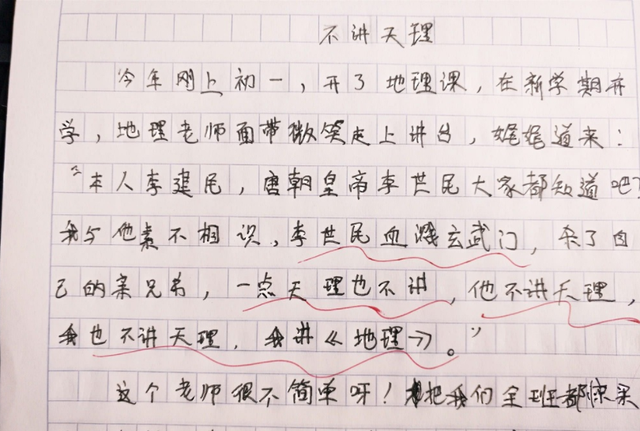 不讲天理
今年刚上初一，开了地理课，在新学期开
学，地理老师面带微笑走上讲台，娓娓道来：
“本人李建民，唐朝皇帝李世民大家都知道吧？
我与他素不相识，李世民血溅玄武门，杀了自
己的亲兄弟，一点天理也不讲，他不讲天理，
我也不讲天理，我讲《地理》。”
这个老师很不简单呀！把我们全班都惊呆